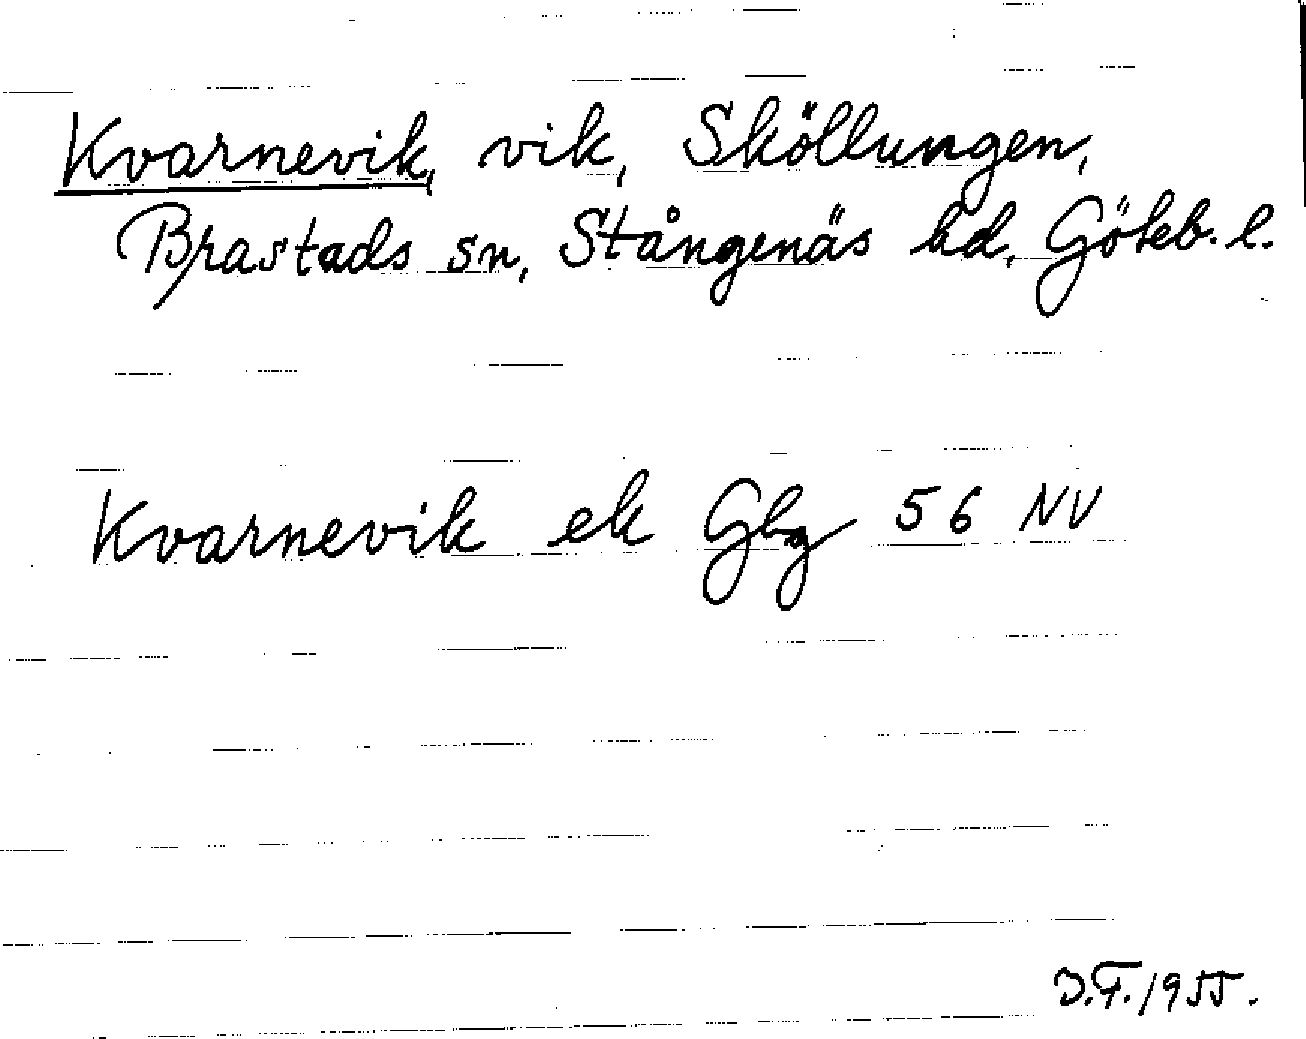 Kvarnevik, vik, Sköllungen,
Brastads sn, Stångenäs hd, Göteb. l.
Kvarnevik ek Gbg 56 NV
J.F. 1955.